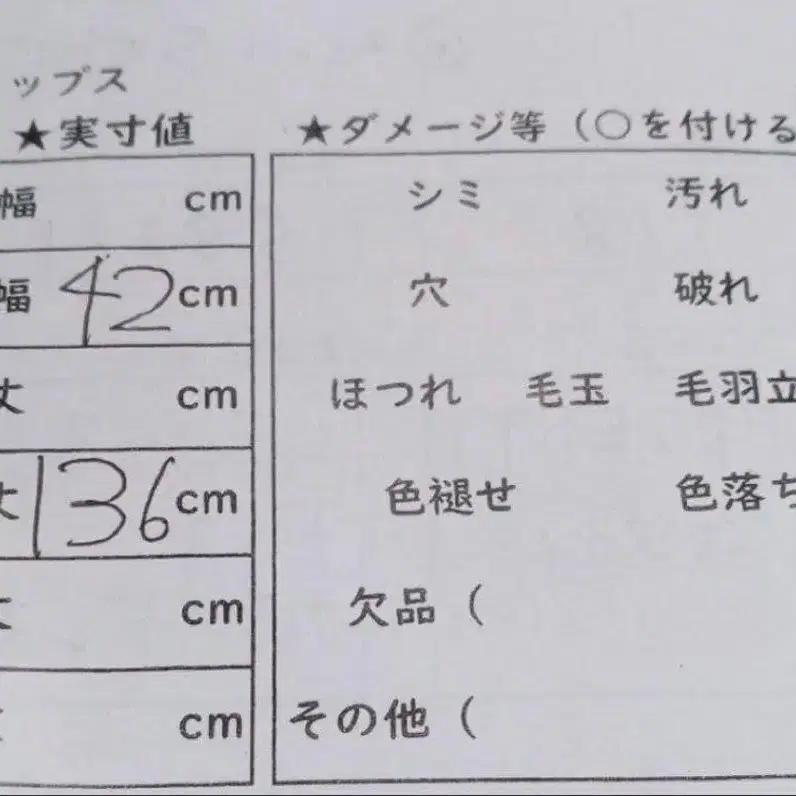 ップス
★実寸値
★ダメージ等（○を付ける
幅 cm
シミ 汚れ
幅 42cm
穴 破れ
丈 cm
ほつれ 毛玉 毛羽立
丈 136cm
色褪せ 色落ち
丈 cm
欠品（
cm
その他（